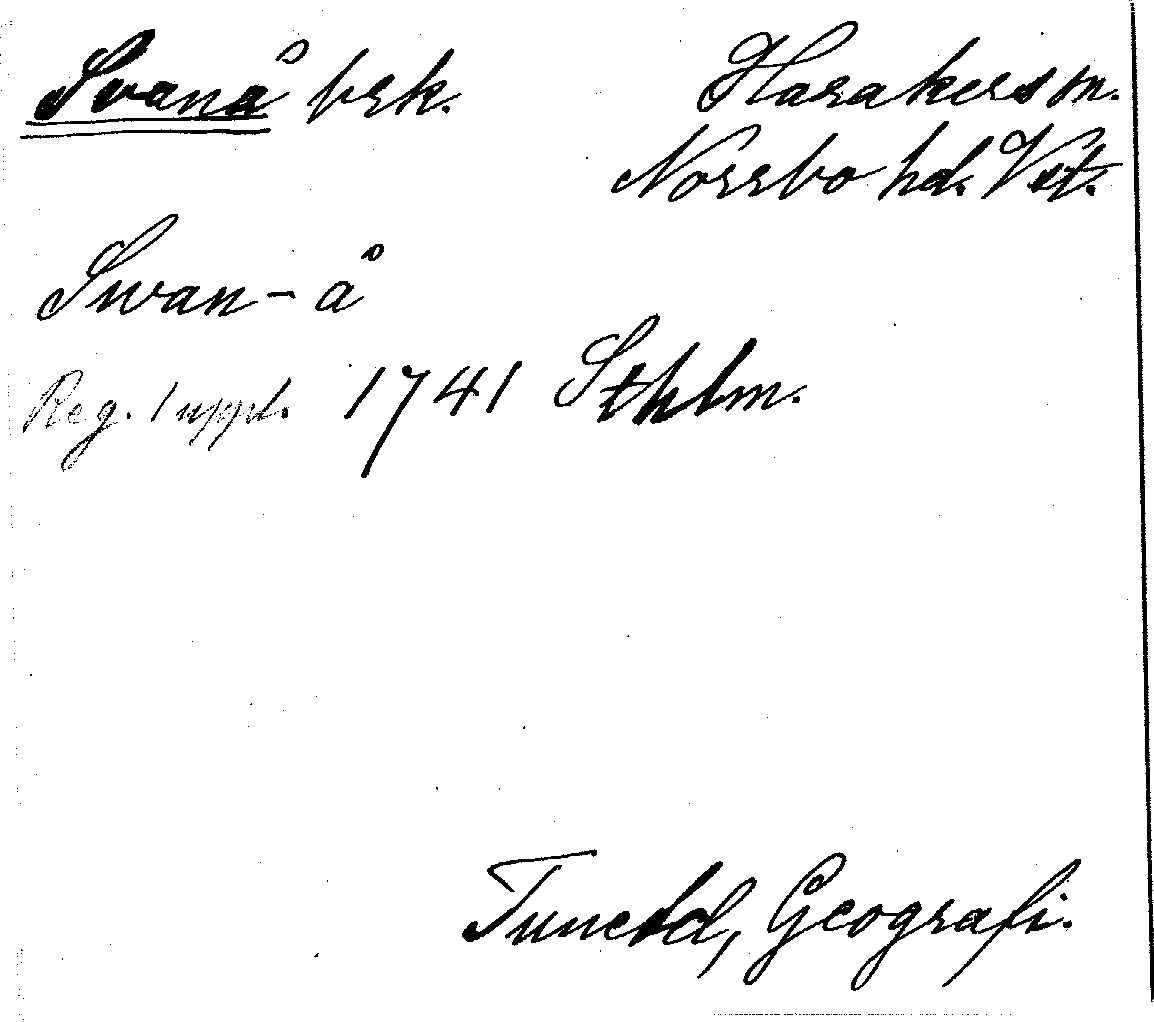 Svanå brk.
Harakers sn.
Norrbo hd. Vstm.
Swan-å
Reg. 1 uppl. 1741 Sthlm.
Tuneld, Geografi.